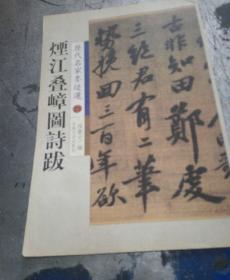 煙江叠嶂圖詩跋
歷代名家墨迹選
古非知田鄭虔
三絕君有二筆
勢挽回三百年欲